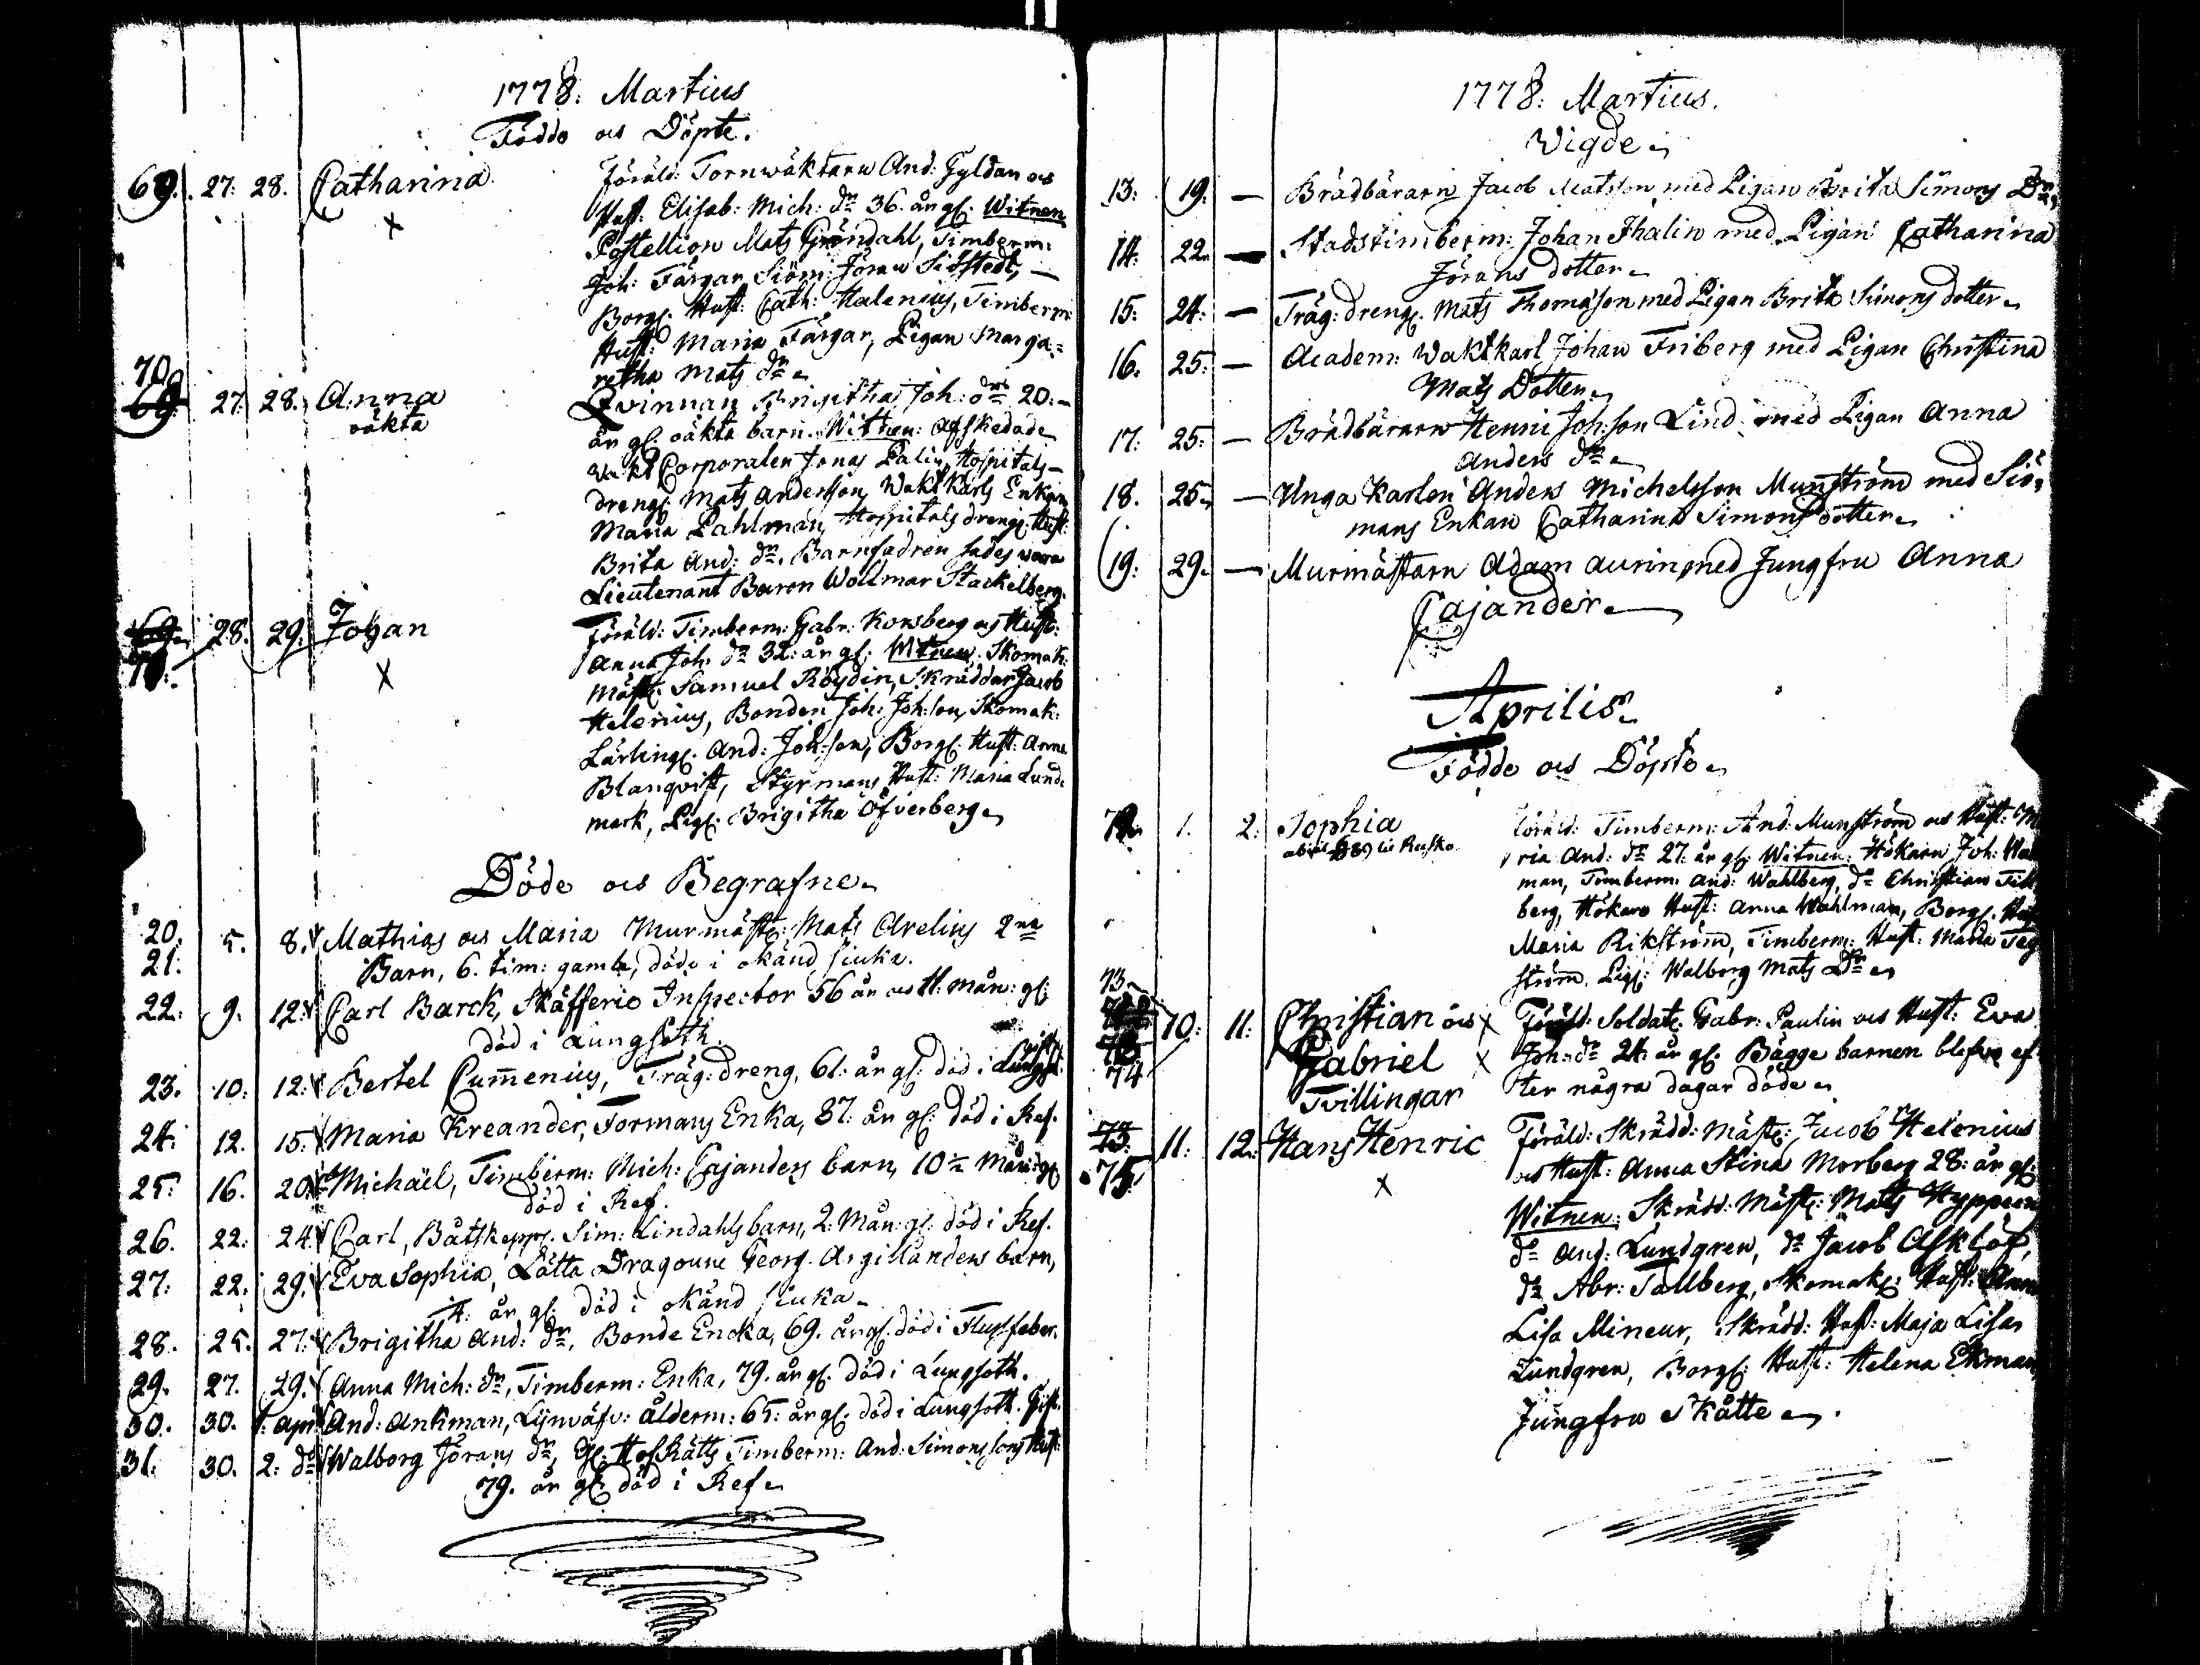 1778: Martius
Födde ocs Döpte.
69. 27: 28. Catharina. Föräld: Tornwäktarn And: Gyldan ocs
Hust: Elisab: Mich: dr 36. år gl: Witnen
x
Postellion Mats Gröndahl, Timberm:
Joh: Färgar, Siöm: Jöran Siöstedt, —
Borgs. Hust: Cath: Halenius, Timberm:
Hust: Maria Färgar, Pigan Marga=
retha Mats dr
70. 69. 27. 28. Anna Qvinnan Brigitha Joh: dr 20: —
oäkta år gl: oäkta barn. Witnen: Afskedade
Corporalen Jonas Palin, Hospitals —
drengs: Mats Andersson, Waktkarls Enkan
Maria Pahlman, Hospitals drengs: Hust:
Brita And: dr. Barnfadren sades wara
Lieutenant Baron Wollmar Stackelberg.
69. 28. 29. Johan Föräld: Timberm: Gabr: Konsberg ocs Hust:
71. Anna Joh. dr 32: år gl: Witnen: Skomak:
x
mäst: Samuel Röydin, Skräddar Jacob
Helenius, Bonden Joh: Joh:son, Skomak:
Lärlings. And: Joh:son, Borgs: Hust: Anna
Blanqvist, Styrmans Hust: Maria Lund=
mark, Pigs: Brigitha Öfverberg
Döde ocs Begrafne
20. 5. 8. Mathias ocs Maria Murmäst: Mats Arelius 2ne
21. Barn, 6. tim: gamla, döde i okänd siuka.
22. 9. 12. Carl Barck, Skäfferie Inspector 56 år ocs 11. mån: gl:
död i Lungsoth.
23. 10: 12: Bertel Cumenius, Träg: dreng, 61: år gl: död i Lungst:
24: 12. 15: Maria Kreander, Formans Enka, 87. år gl: död i Ref.
25: 16. 20: Michäel, Timberm: Mich: Cajanders barn, 10½ Mån: gl
död i Ref.
26. 22: 24. Carl, Båtskepps. Sim: Lindahls barn, 2: Mån: gl: död i Ref.
27: 22. 29. Eva Sophia, Lätta Dragoune Georg Argillanders barn,
14: år gl: död i okänd siuka
28. 25. 27: Brigitha And: dr, Bonde Encka, 69. år gl: död i Flussfeber.
29. 27. 29. Anna Mich: dr, Timberm: Enka, 79. år gl: död i Lungsoth.
30. 30. 1: apr: And: Ankman, Lijnväfv: ålderm: 65: år gl: död i Lungsoth. Gift.
31. 30. 2: do Walborg Jörans dr, Gl: HofRätts Timberm: And: Simonssons Hust:
79. år gl: död i Ref
1778: Martius.
Wigde
13: 19. — Brädbärarn Jacob Matsson, med Pigan Brita Simons Dr
14: 22. — Stadstimberm: Johan Thalin med Pigan Catharina
Jörans dotter
15: 24: — Träg: drengs. Mats Thomasson med Pigan Brita Simons dotter
16. 25: — Academ: Waktkarl Johan Friberg med Pigan Christina
Mats Dotter
17: 25: — Brädbärarn Henric Joh:son Lind: med Pigan Anna
Anders dr
18. 25 — Unga Karlen Anders Michelsson Munström med Siö=
mans Enkan Catharina Simons dotter
19: 29. — Murmästarn Adam Aurin, med Jungfru Anna
Cajander
Aprilis
Födde ocs Döpte
72. 1. 2: Sophia Föräld: Timberm: And: Munström ocs Hust: Ma
ria And: dr 27: år gl: Witnen: Hökarn Joh: Wa
man, Timberm. And: Wahlberg, do Christian
berg, Hökare Hust: Anna Wahlman, Borgs. Hust
Maria Rikström, Timberm: Hust: Maria Teg
ström, Pigs: Walborg Mats Dr
73
10: 11: Christian ocs x Föräld: Soldat: Gabr: Paulin ocs Hust: Eva
74 Gabriel x Joh: dr 24: år gl. Bägge barnen blefvo ef
Tvillingar ter några dagar döde
73. 11: 12. Hans Henric Föräld: Skrädd: Mäst: Jacob Helenius
75. x ocs Hust: Anna Stina Morberg 28: år gl:
Witnen: Skrädd: Mäst: Mats
do And: Lundgren, do Jacob Asklöf,
do Abr: Tallberg, Skomaks: Hust: Anna
Lisa Mineur, Skrädd: Hust: Maja Lisa
Lundgren, Borgs: Hust: Helena Ekman
Jungfru Skåtte